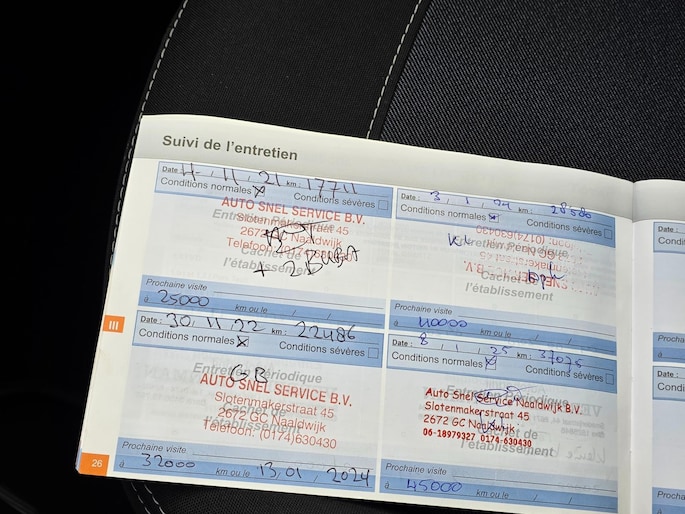 Suivi de l'entretien
Date : 4 , 11 , 21 km : 17711
Conditions normales Conditions sévères
AUTO SNEL SERVICE B.V.
Entretien Périodique
Slotenmakerstraat 45
2672 GC Naaldwijk
Telefoon: (0174)630430
Cachet de
l'établissement
Prochaine visite
à 25000 km ou le / /
Date : 3 , 1 , 24 km : 28580
Conditions normales Conditions sévères
Entretien Périodique
Cachet de
l'établissement
Prochaine visite
à 40000 km ou le / /
III
Date : 30 , 11 , 22 km : 22486
Conditions normales Conditions sévères
GB
Entretien Périodique
AUTO SNEL SERVICE B.V.
Slotenmakerstraat 45
2672 GC Naaldwijk
Cachet de
Telefoon: (0174)630430
l'établissement
Prochaine visite
à 32000 km ou le 13, 01 / 2024
Date : 8 , 1 , 25 km : 37075
Conditions normales Conditions sévères
Entretien Périodique
Auto Snel Service Naaldwijk B.V.
Slotenmakerstraat 45
2672 GC Naaldwijk
Cachet de
06-18979327 0174-630430
l'établissement
Prochaine visite
à 45000 km ou le / /
26